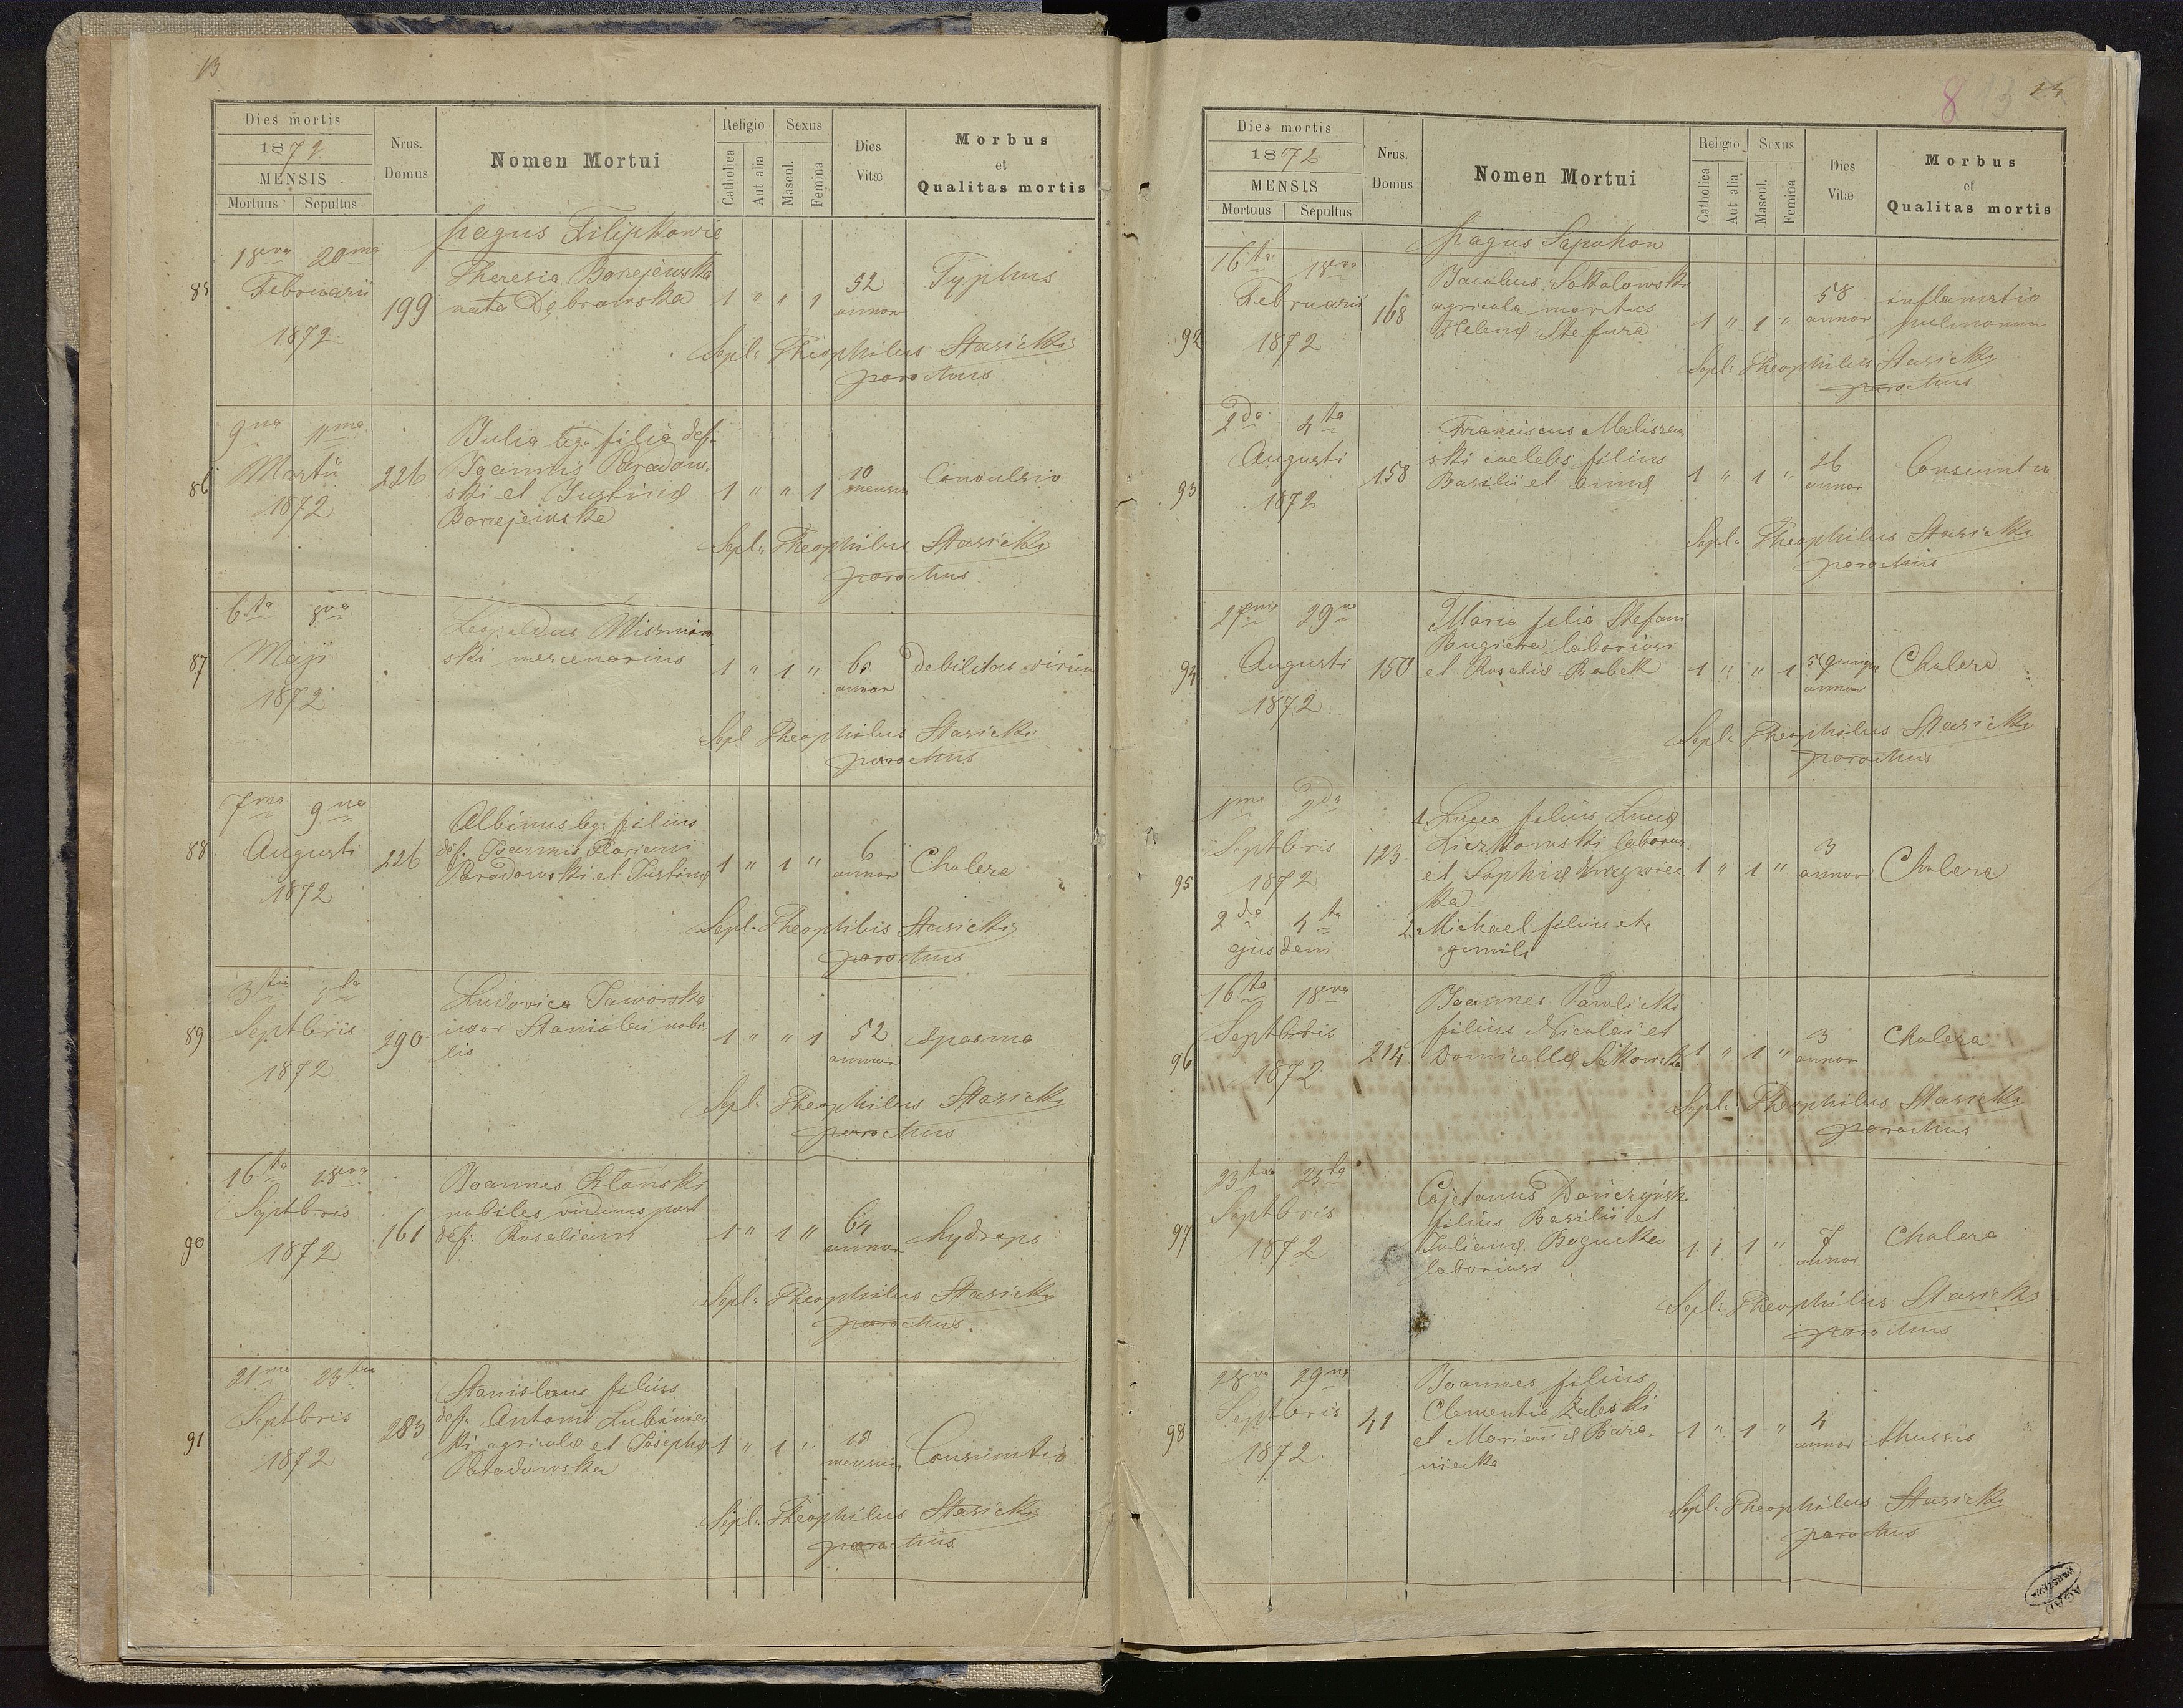 13
Dies mortis
1872
MENSIS
Mortuus Sepultus
Nrus. Domus
Nomen Mortui
Religio
Catholica
Aut alia
Sexus
Mascul.
Femina
Dies Vitæ
Morbus
et
Qualitas mortis
pagus Filipkowce
85 18eva 20ma
Februarii
1872
199
Theresia
nata Dąbrowska
1 " " 1
52
annor
Typhus
Sepl: Theophilus Stasicki
parochus
86 9na 11ma
Martii
1872
226
Julia leg. filia def.
Joannis Paradow-
ski et Justinæ
1 " " 1
10
mensium
Convulsio
Sepl: Theophilus Stasicki
parochus
87 6ta 8va
Maji
1872
Leopoldus Wismin
ski mercenarius
1 " 1 "
60
annor
debilitas virium
Sepl Theophilus Stasicki
parochus
88 7ma 9na
Augusti
1872
226
Albinus leg. filius
def. Joannis Floriani
Paradowski et Justinæ
1 " 1 "
6
annor
Cholera
Sepl. Theophilus Stasicki
parochus
89 3tia 5ta
Septbris
1872
290
Ludovica Jaworska
uxor Stanislai nobi-
lis
1 " " 1
52
annor
spasma
Sepl: Theophilus Stasicki
parochus
90 16ta 18eva
Septbris
1872
161
Joannes
nobiles viduus post
def. Rosaliam
1 " 1 "
64
annor
hydrops
Sepl: Theophilus Stasicki
parochus
91 21ma 23tia
Septbris
1872
283
Stanislaus filius
def. Antoni
agricolæ et Josephæ
Paradowska
1 " 1 "
mensium
Consumtio
Sepl: Theophilus Stasicki
parochus
8 13 14
Dies mortis
1872
MENSIS
Mortuus Sepultus
Nrus. Domus
Nomen Mortui
Religio
Catholica
Aut alia
Sexus
Mascul.
Femina
Dies Vitæ
Morbus
et
Qualitas mortis
pagus Sapohow
92 16ta 18eva
Februarii
1872
168
Jacobus Sokolowski
agricola maritus
Helenæ Stefura
1 " 1 "
58
annor
inflamatio
pulmonum
Sepl: Theophilus Stasicki
parochus
93 2da 4ta
Augusti
1872
158
Franciscus Maliszew
ski coelebs filius
Basilii et Annæ
1 " 1 "
26
annor
Consumtio
Sepl: Theophilus Stasicki
parochus
94 27ma 29na
Augusti
1872
150
Maria filia Stefani
laboriosi
et Rosaliæ Babek
1 " " 1
5
annor
Cholera
Sepl: Theophilus Stasicki
parochus
95 1ma 2da
Septbris
1872
123
1. Lucas filius Lucæ
laborios
et Sophiæ
ka
1 " 1 "
3
annor
Cholera
2da 4ta
ejusdem
2. Michael filius etc
gemili
96 16ta 18eva
Septbris
1872
214
Joannes Pawlicki
filius Nicolai et
Domicellæ
1 " 1 "
3
annor
Cholera
Sepl: Theophilus Stasicki
parochus
97 23tia 25ta
Septbris
1872
Cajetanus
filius Basilii et
Julianæ Bogucka
laboriosi
1 " 1 "
7
annor
Cholera
Sepl: Theophilus Stasicki
parochus
98 28va 29na
Septbris
1872
41
Joannes filius
Clementis Zaleski
et Mariannæ Bara-
niecka
1 " 1 "
4
annor
thussis
Sepl: Theophilus Stasicki
parochus
AGAD
WARSZAWA